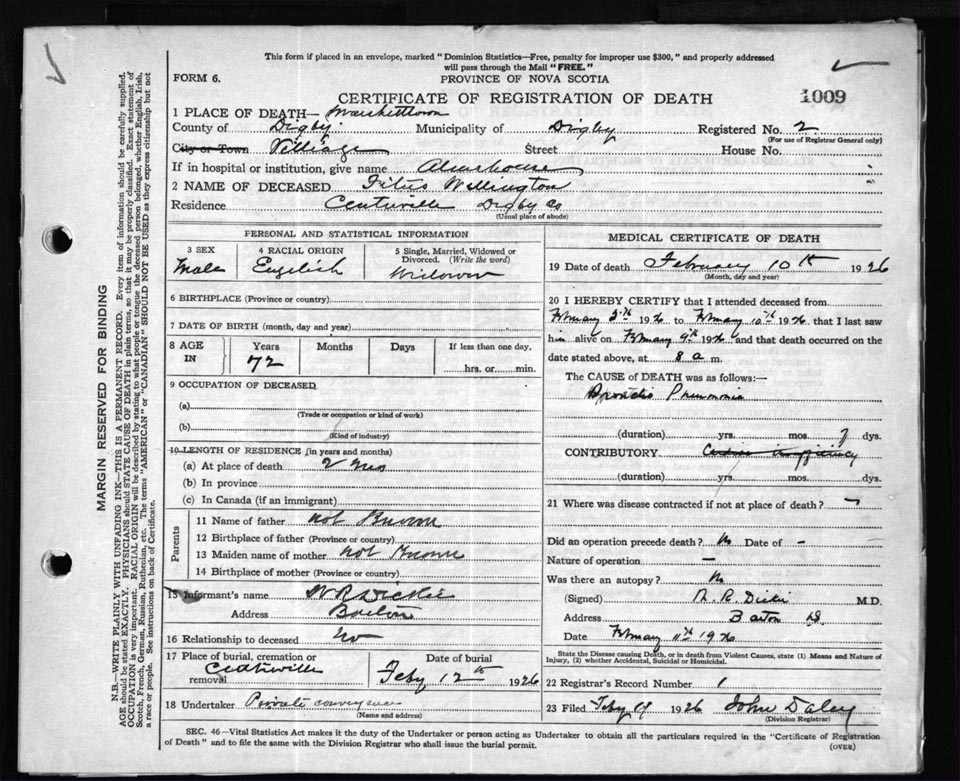 This form if placed in an envelope, marked "Dominion Statistics—Free, penalty for improper use $300," and properly addressed
will pass through the Mail "FREE."
FORM 6.
PROVINCE OF NOVA SCOTIA
CERTIFICATE OF REGISTRATION OF DEATH
1009
1 PLACE OF DEATH— Marshalltown
County of Digby Municipality of Digby Registered No. 2
(For use of Registrar General only)
City or Town Village Street House No.
If in hospital or institution, give name Almshouse
2 NAME OF DECEASED Titus Wellington
Residence Centreville Digby Co
(Usual place of abode)
PERSONAL AND STATISTICAL INFORMATION
3 SEX Male
4 RACIAL ORIGIN English
5 Single, Married, Widowed or Divorced. (Write the word) Widower
6 BIRTHPLACE (Province or country)
7 DATE OF BIRTH (month, day and year)
8 AGE IN Years 72 Months Days If less than one day. hrs. or min.
9 OCCUPATION OF DECEASED
(a)
(Trade or occupation or kind of work)
(b)
(Kind of industry)
10 LENGTH OF RESIDENCE (in years and months)
(a) At place of death 2 mos
(b) In province
(c) In Canada (if an immigrant)
Parents
11 Name of father not Known
12 Birthplace of father (Province or country)
13 Maiden name of mother not Known
14 Birthplace of mother (Province or country)
15 Informant's name W R Dickie
Address Barton
16 Relationship to deceased no
17 Place of burial, cremation or removal Centreville
Date of burial Feby 12th 1926
18 Undertaker Private conveyance
(Name and address)
MEDICAL CERTIFICATE OF DEATH
19 Date of death February 10th 1926
(Month, day and year)
20 I HEREBY CERTIFY that I attended deceased from
February 3th 1926 to February 10th 1926 that I last saw
him alive on February 9th 1926 and that death occurred on the
date stated above, at 8 a m.
The CAUSE OF DEATH was as follows:—
Pneumonia
(duration) yrs. mos. 7 dys.
CONTRIBUTORY Cardiac insufficiency
(duration) yrs. mos. dys.
21 Where was disease contracted if not at place of death? —
Did an operation precede death? No Date of –
Nature of operation —
Was there an autopsy? No
(Signed) R. Dickie M.D.
Address Barton
Date February 11th 1926
State the Disease causing Death, or in death from Violent Causes, state (1) Means and Nature of
Injury, (2) whether Accidental, Suicidal or Homicidal.
22 Registrar's Record Number 1
23 Filed Feby 19 1926 John Daley
(Division Registrar)
SEC. 46—Vital Statistics Act makes it the duty of the Undertaker or person acting as Undertaker to obtain all the particulars required in the "Certificate of Registration
of Death" and to file the same with the Division Registrar who shall issue the burial permit.
(OVER)
MARGIN RESERVED FOR BINDING
N.B.—WRITE PLAINLY WITH UNFADING INK—THIS IS A PERMANENT RECORD. Every item of information should be carefully supplied.
AGE should be stated EXACTLY. PHYSICIANS should STATE CAUSE OF DEATH in plain terms, so that it may be properly classified. Exact statement of
OCCUPATION is very important. RACIAL ORIGIN will be described by stating to what people or tongue the deceased person belonged, whether English, Irish,
Scotch, French, German, Russian, Ruthenian, etc. The terms "AMERICAN" or "CANADIAN" SHOULD NOT BE USED as they express citizenship but not
a race or people. See instructions on back of Certificate.